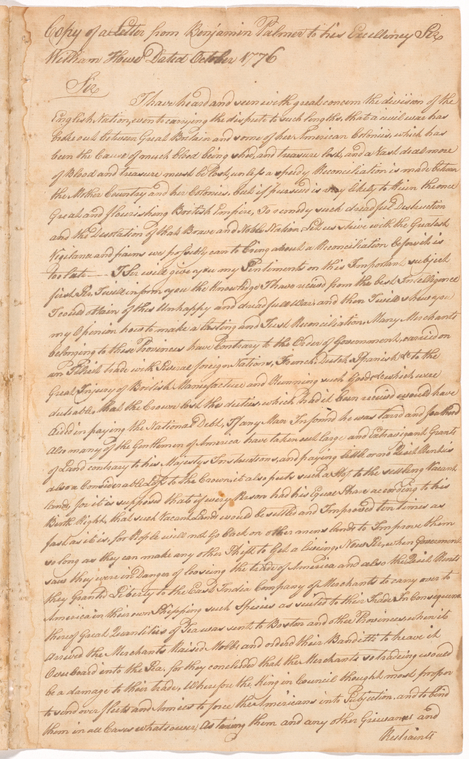 Copy of a Letter from Benjamin Palmer to his Excellency Sir
William Howe Dated October 1776
Sir
I have heard and seen with great concern the division of the
English Nation, even to carrying the dispute to such lengths, that a civil war has
broke out between Great Britain and some of her American Colonies, which has
been the Cause of much blood being shed, and treasure lost, and a Vast deal more
of Blood and treasure must be lost, unless a speedy Reconciliation is made between
the Mother Country and her Colonies, but if persued is very likely to Ruin the once
Great and flourishing British Empire, To remedy such dreadful Destruction
and the Desolation of that Brave and Noble Nation, Let us strive with the Greatest
Vigilance and pains we possibly can to bring about a Reconciliation before it is
too late — I Sir will give you my Sentiments on this Important subject
first Sir I will inform you the knowledge I have acured from the best Intelligence
I could attain of this Unhappy and dreadfull War and then I will shew you
my Opinion how to make a lasting and Just Reconciliation. Many Merchants
belonging to these Provinces have Contrary to the Order of Government, carried on
an Illicit trade with Several foreign Nations, French, Dutch, Spanish &c to the
Great Injury of British Manufactures and Runing such Goods which were
dutiable, that the Crown lost the duties which had it been received would have
Aided in paying the National debt, If any Man Informed he was tard and feathred
Also many of the Gentlemen of America have taken out large and Extravagant Grants
of Land contrary to his Majestys Instructions, and paying little or no Quit Rents is
also a Considerable Loss to the Crown & also puts such a Stop to the settling Vacant
lands, for it is supposed that if every Person had his Equal Share according to his
Birth Right, that such Vacant Lands would be settled and Improved ten times as
fast as it is, for People will not Go Back on other mens lands to Improve them
so long as they can make any other Shift to Get a liveing. Now Sir, when Government
saw they were in Danger of loosing the trade of America and also the Quit Rents
they Granted Liberty to the East India Company of Merchants to carry over to
America in their own Shipping such Species as suited to their Trade In Consequence
thereof Great Quantities of Tea was sent to Boston and other Provinces, when it
arrived the Merchants Raised Mobs and orderd their Banditti to heave it
Overboard into the Sea, for they concluded that the Merchants so trading would
be a damage to their trade, Wherefore the King in Council thought most proper
to send over fleets and Armies to force the Americans into Subjection, and to bind
them in all Cases whatsoever, as taxing them and any other Grievances and
Restraints